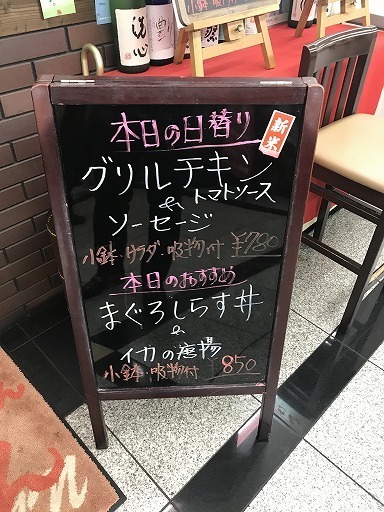 本日の日替り
新米
グリルチキン
&トマトソース
ソーセージ
小鉢・サラダ・吸物付 ¥780
本日のおすすめ
まぐろしらす丼
&
イカの唐揚
小鉢・吸物付 ¥850
洗心